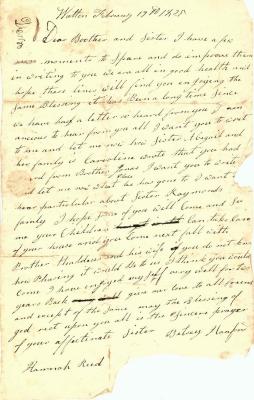 Walton February 19th 1825
Dear Brother and Sister I have a few
moments to Spare and do improve them
in writing to you we are all in good health and
hope these lines will find you enjoying the
Same Blessing it has Been a long time Sence
we have had a letter or heard from you I am
ancious to hear from you all I want you to write
to me and let me no how Sister Abigail and
her family is Caroline wrote that you had
from Brother I want you to write
and let me no what he has gone to I want to
hear particular about Sister Raymonds
family I hope you will Come and See
me your Children Can take Care
of your house and you Come next fall with
Brother Thaldeus and his wife if you do not know
how Pleasing it would Be to us I think you would
Come I have enjoyed my Self very well for two
years Back give my love to all friends
and except of the Same may the Blessing of
god rest upon you all is the Sincere prayer
of your affectionate Sister Betsey
Hannah Reed